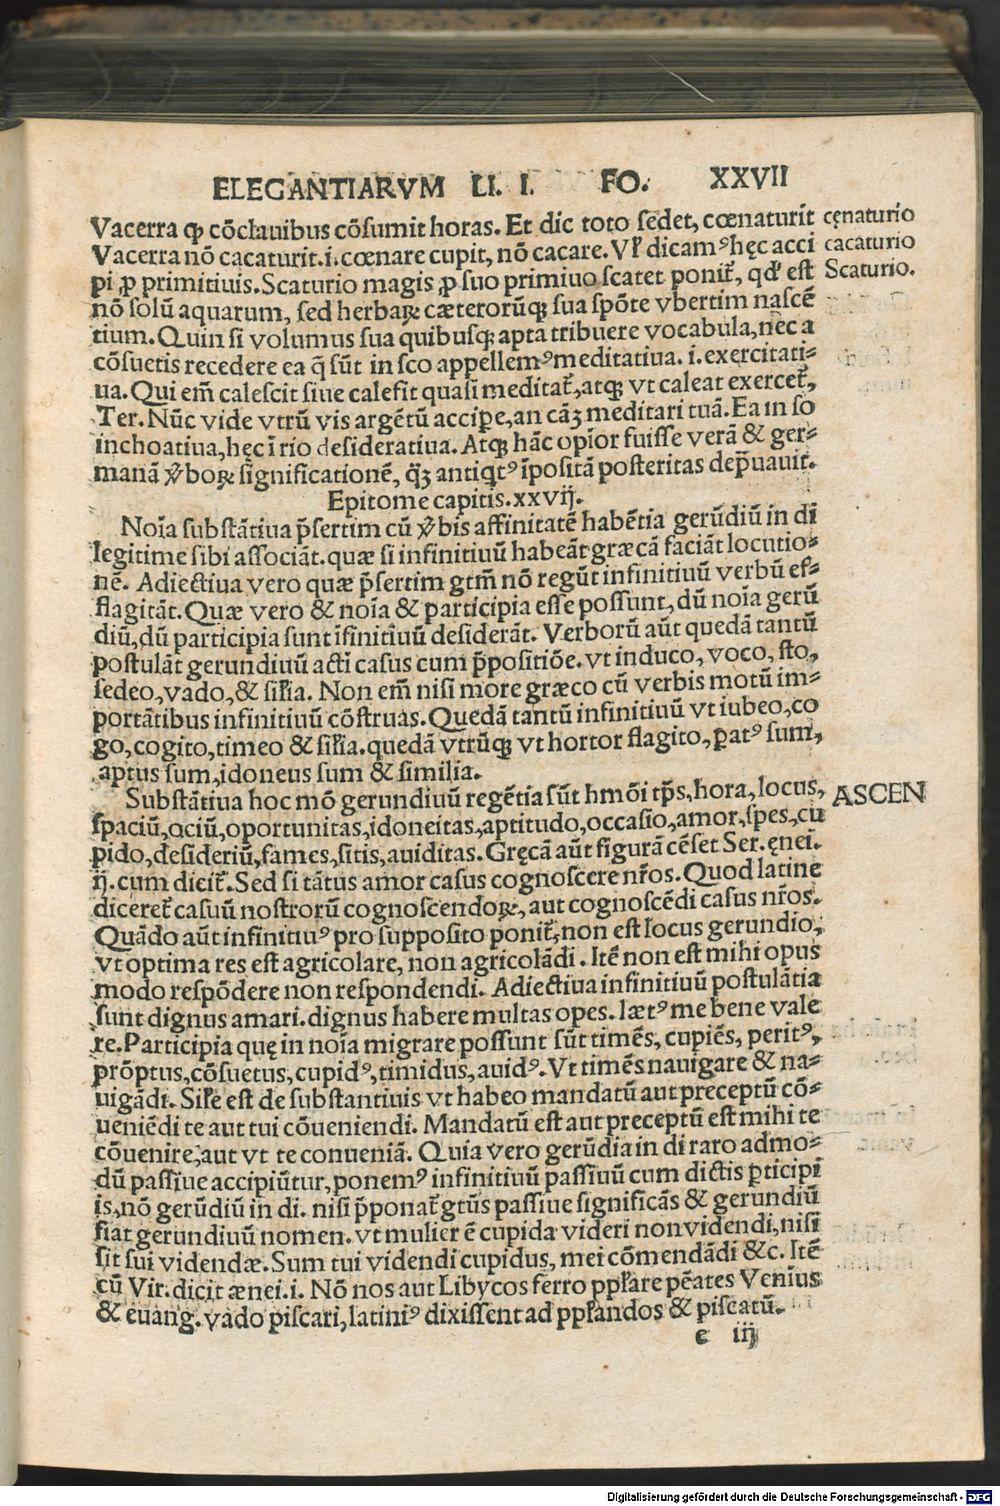 ELEGANTIARVM LI. I. FO. XXVII
Vacerra ꝙ cōclauibus cōsumit horas. Et dic toto sedet, cœnaturit
cęnaturio
Vacerra nō cacaturit.i.cœnare cupit, nō cacare. Vꝉ dicamꝰ hęc acci
cacaturio
pi ꝓ primitiuis. Scaturio magis ꝓ suo primiuo scatet ponit᷑, qd' est
Scaturio.
nō solū aquarum, sed herbaꝝ cæterorūqꝫ sua spōte vbertim nascē
tium. Quin si volumus sua quibusqꝫ apta tribuere vocabula, nec a
cōsuetis recedere ea q̄ sūt in sco appellemꝰ meditatiua. i. exercitati⸗
ua. Qui em̄ calescit siue calefit quasi meditat᷑, atqꝫ vt caleat exercet᷑,
Ter. Nūc vide vtrū vis argētū accipe, an cāꝫ meditari tuā. Ea in so
inchoatiua, hęc ī rio desideratiua. Atqꝫ hāc opīor fuisse verā & ger⸗
manā ꝟboꝝ significationē, q̄ꝫ antiqtꝰ īpositā posteritas dep̄uauit.
Epitome capitis.xxvij.
Noīa substātiua p̄sertim cū ꝟbis affinitatē habētia gerūdiū in di
legitime sibi associāt. quæ si infinitiuū habeāt græcā faciāt locutio⸗
nē. Adiectiua vero quæ p̄sertim gtm̄ nō regūt infinitiuū verbū ef⸗
flagitāt. Quæ vero & noīa & participia esse possunt, dū noīa gerū
diū, dū participia sunt īfinitiuū desiderāt. Verborū aūt quedā tantū
postulāt gerundiuū acti casus cum p̄positiōe. vt induco, voco, sto,
sedeo, vado, & siĺia. Non em̄ nisi more græco cū verbis motū im⸗
portātibus infinitiuū cōstruas. Quedā tantū infinitiuū vt iubeo, co
go, cogito, timeo & siĺia. quedā vtrūqꝫ vt hortor flagito, ꝑatꝰ sum,
aptus sum, idoneus sum & similia.
Substātiua hoc mō gerundiuū regētia sūt hmōi tp̄s, hora, locus,
ASCEN
spaciū, ociū, oportunitas, idoneitas, aptitudo, occasio, amor, spes, cu
pido, desideriū, fames, sitis, auiditas. Gręcā aūt figurā cēset Ser. ęnei.
ij. cum dicit᷑. Sed si tātus amor casus cognoscere nr̄os. Quod latine
diceret᷑ casuū nostrorū cognoscendoꝝ, aut cognoscēdi casus nr̄os.
Quādo aūt infinitiuꝰ pro supposito ponit᷑, non est locus gerundio,
vt optima res est agricolare, non agricolādi. Itē non est mihi opus
modo respōdere non respondendi. Adiectiua infinitiuū postulātia
sunt dignus amari. dignus habere multas opes. lætꝰ me bene vale
re. Participia quę in noīa migrare possunt sūt timēs, cupiēs, peritꝰ,
prōptus, cōsuetus, cupidꝰ, timidus, auidꝰ. Vt timēs nauigare & na⸗
uigādi. Siĺe est de substantiuis vt habeo mandatū aut preceptū cō⸗
ueniēdi te aut tui cōueniendi. Mandatū est aut preceptū est mihi te
cōuenire, aut vt te conueniā. Quia vero gerūdia in di raro admo⸗
dū passiue accipiūtur, ponemꝰ infinitiuū passiuū cum dictis ꝑticipi
is, nō gerūdiū in di. nisi p̄ponat᷑ gtūs passiue significās & gerundiū
fiat gerundiuū nomen. vt mulier ē cupida videri non videndi, nisi
sit sui videndæ. Sum tui videndi cupidus, mei cōmendādi &c. Itē
cū Vir. dicit ænei.i. Nō nos aut Libycos ferro ppĺare pēates Venīus
& euang. vado piscari, latiniꝰ dixissent ad ppĺandos & piscatū.
e iij
Digitalisierung gefördert durch die Deutsche Forschungsgemeinschaft - DFG